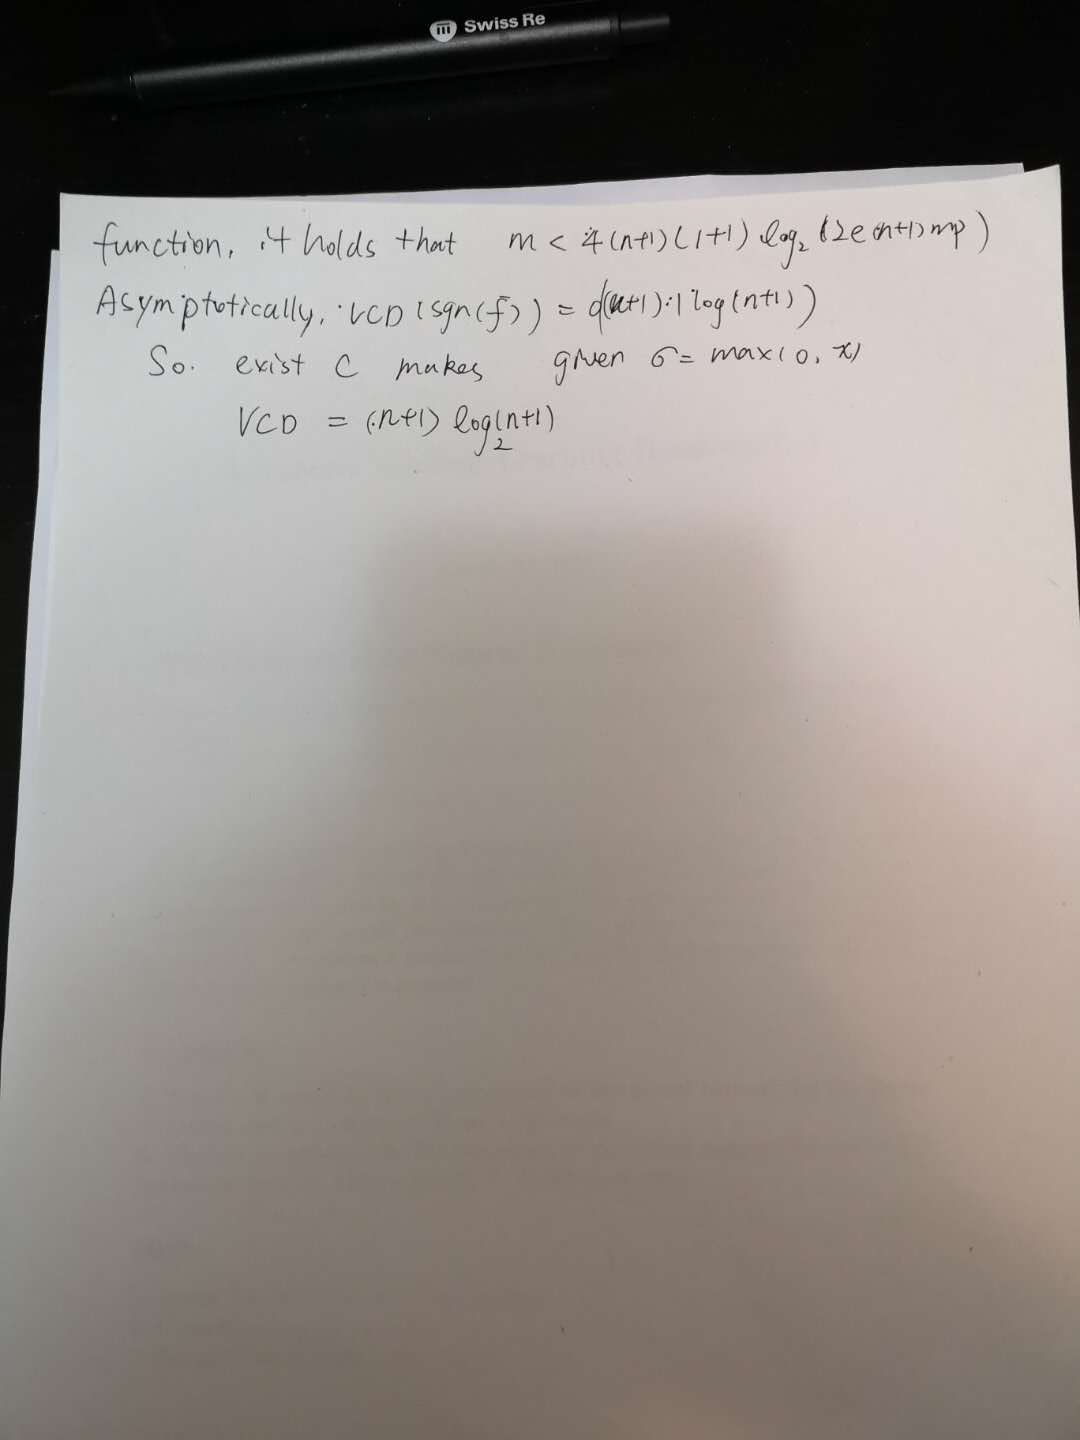 Swiss Re
function, it holds that m < 4(n+1)(1+1) log₂ (2e(n+1)mp)
Asymptotically, VCD (sgn(f)) = O((n+1)·1 log(n+1))
So. exist C makes given σ = max(0, x)
VCD = (n+1) log₂(n+1)